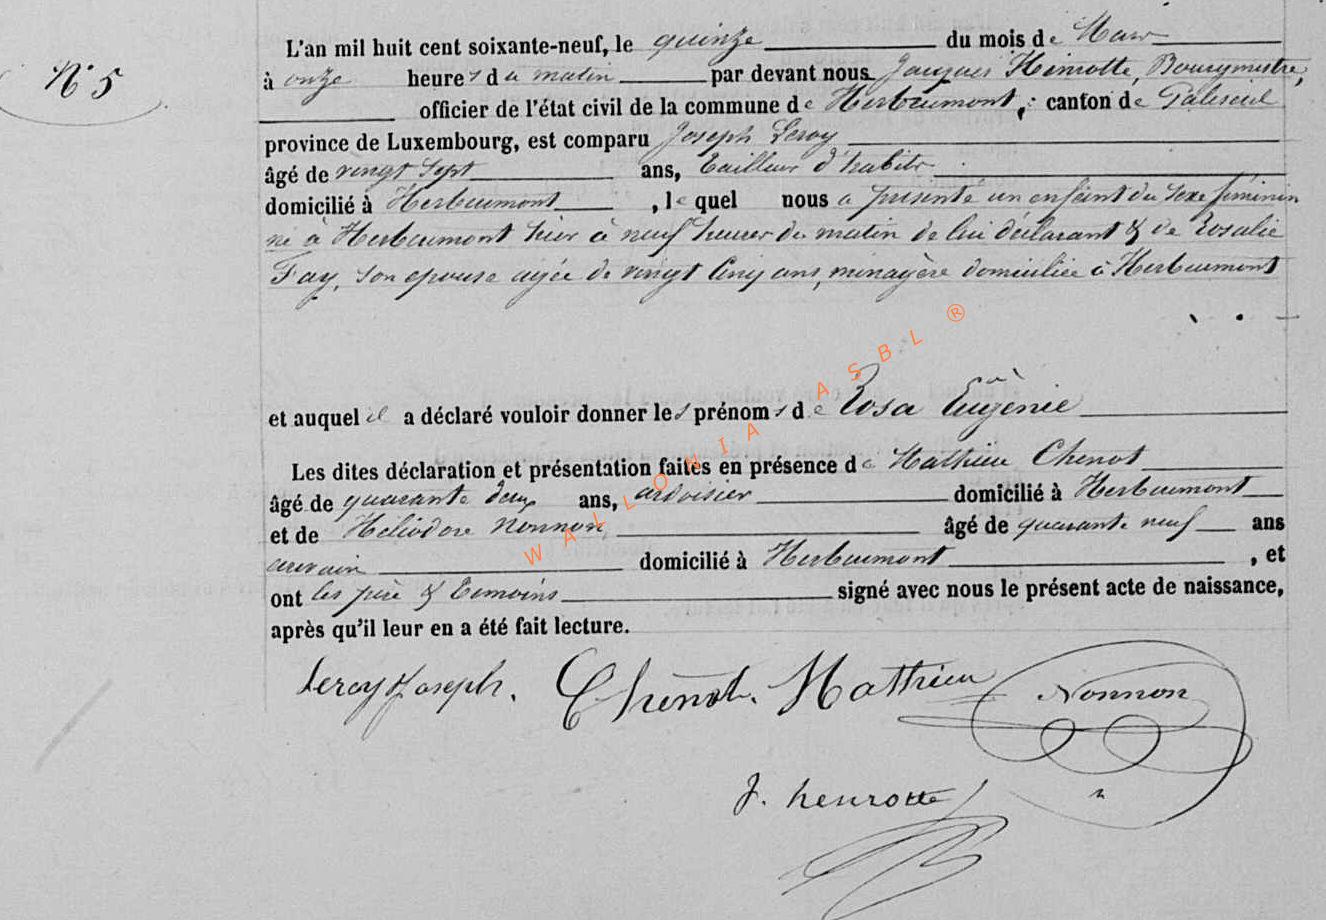 N° 5
L'an mil huit cent soixante-neuf, le quinze du mois de Mars
à onze heures du matin par devant nous Jacques Henrotte, Bourgmestre,
officier de l'état civil de la commune de Herbeumont, canton de Paliseul
province de Luxembourg, est comparu Joseph Leroy
âgé de vingt sept ans, tailleur d'habits
domicilié à Herbeumont, lequel nous a présenté un enfant du sexe féminin
né à Herbeumont hier à neuf heures du matin de lui déclarant & de Rosalie
Fay, son epouse agée de vingt cinq ans, ménagère domiciliée à Herbeumont
et auquel il a déclaré vouloir donner les prénoms de Rosa Eugènie
Les dites déclaration et présentation faites en présence de Mathieu Chenot
âgé de quarante deux ans, ardoisier domicilié à Herbeumont
et de Héliodore Nonnon âgé de quarante neuf ans
domicilié à Herbeumont, et
ont les père & temoins signé avec nous le présent acte de naissance,
après qu'il leur en a été fait lecture.
Leroy Joseph. Chenot. Mathieu Nonnon
J. henrotte
WALLONIA ASBL ®